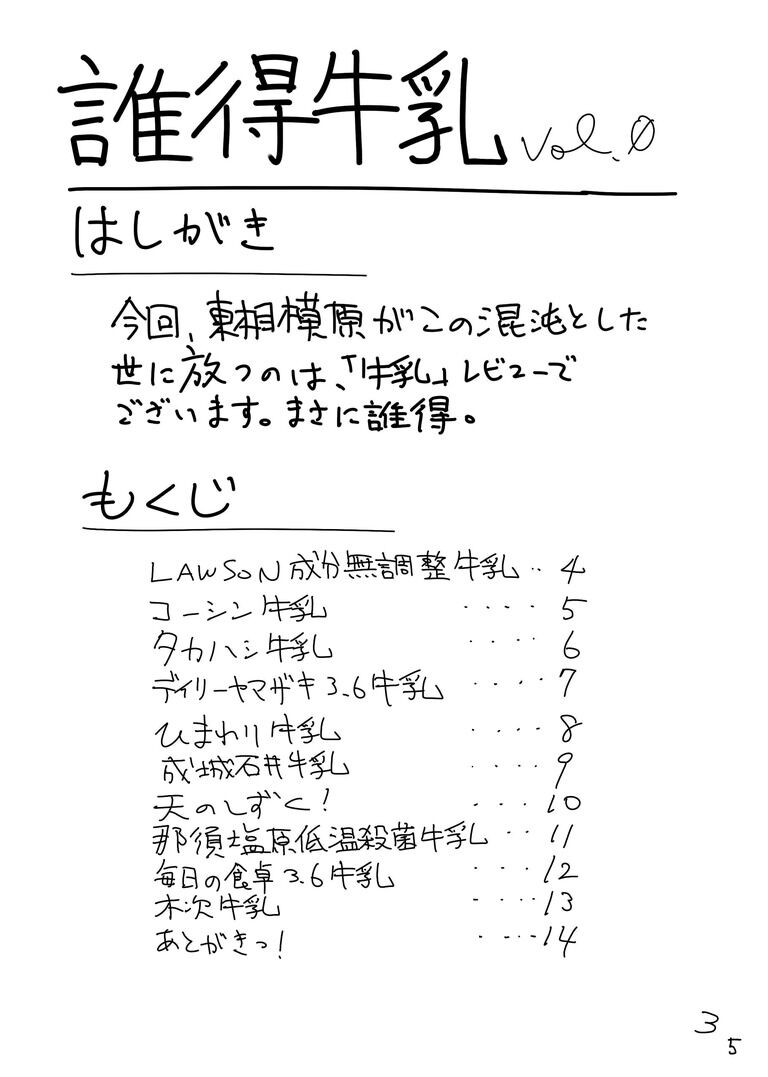 誰得牛乳 vol.0
はしがき
今回、東相模原がこの混沌とした
世に放つのは、「牛乳」レビューで
ございます。まさに誰得。
もくじ
LAWSON成分無調整牛乳‥4
コーシン牛乳····5
タカハシ牛乳····6
デイリーヤマザキ3.6牛乳····7
ひまわり牛乳····8
成城石井牛乳····9
天のしずく!···10
那須塩原低温殺菌牛乳··11
毎日の食卓3.6牛乳···12
木次牛乳····13
あとがきっ!····14
3
5